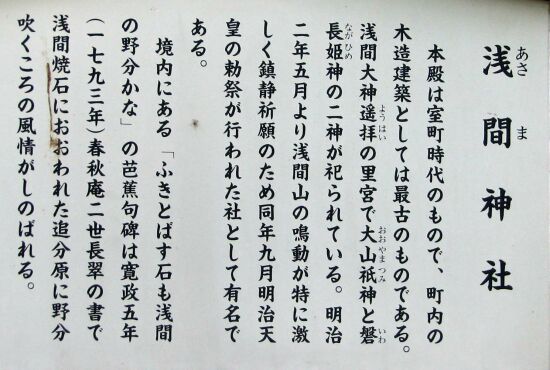 浅間神社
あさま
本殿は室町時代のもので、町内の
木造建築としては最古のものである。
浅間大神遥拝の里宮で大山祇神と磐
ようはい
おおやまつみ
いわ
長姫神の二神が祀られている。明治
ながひめ
二年五月より浅間山の鳴動が特に激
しく鎮静祈願のため同年九月明治天
皇の勅祭が行われた社として有名で
ある。
境内にある「ふきとばす石も浅間
の野分かな」の芭蕉句碑は寛政五年
(一七九三年)春秋庵二世長翠の書で
浅間焼石におおわれた追分原に野分
吹くころの風情がしのばれる。